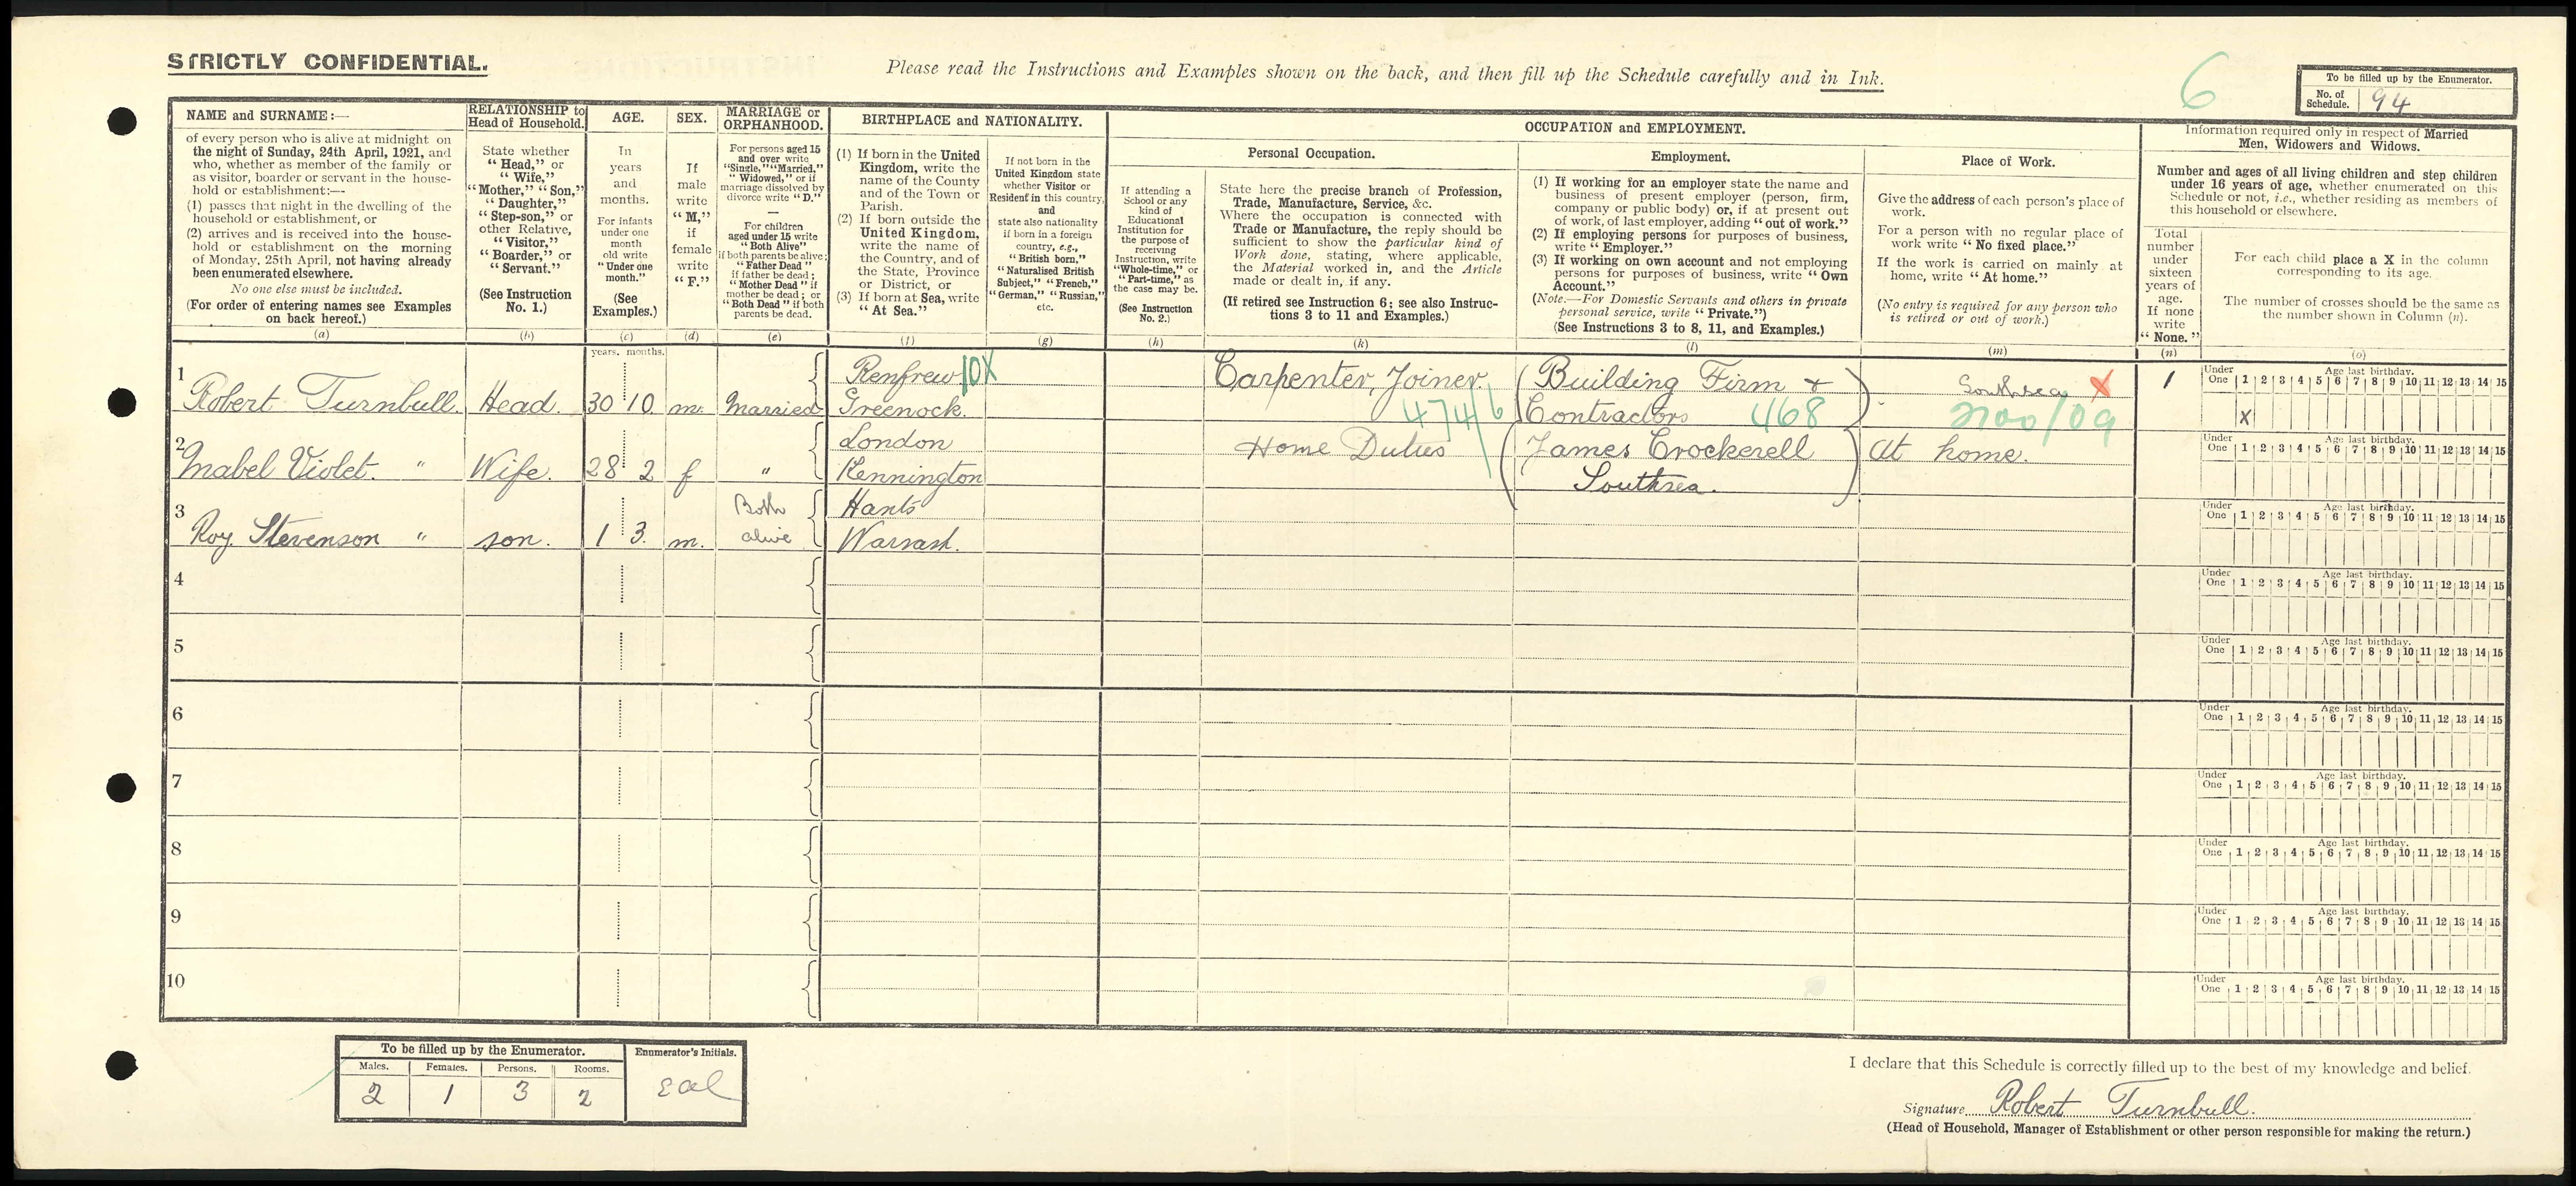 STRICTLY CONFIDENTIAL.
Please read the Instructions and Examples shown on the back, and then fill up the Schedule carefully and in Ink.
6
To be filled up by the Enumerator.
No. of Schedule. 94
NAME and SURNAME:—
of every person who is alive at midnight on
the night of Sunday, 24th April, 1921, and
who, whether as member of the family or
as visitor, boarder or servant in the house-
hold or establishment:—
(1) passes that night in the dwelling of the
household or establishment, or
(2) arrives and is received into the house-
hold or establishment on the morning
of Monday, 25th April, not having already
been enumerated elsewhere.
No one else must be included.
(For order of entering names see Examples
on back hereof.)
(a)
RELATIONSHIP to
Head of Household.
State whether
"Head," or
"Wife,"
"Mother," "Son,"
"Daughter,"
"Step-son," or
other Relative,
"Visitor,"
"Boarder," or
"Servant."
(See Instruction
No. 1.)
(b)
AGE.
In
years
and
months.
For infants
under one
month
old write
"Under one
month."
(See
Examples.)
(c)
SEX.
If
male
write
"M,"
if
female
write
"F."
(d)
MARRIAGE or
ORPHANHOOD.
For persons aged 15
and over write
"Single," "Married,"
"Widowed," or if
marriage dissolved by
divorce write "D."
—
For children
aged under 15 write
"Both Alive"
if both parents be alive;
"Father Dead"
if father be dead;
"Mother Dead" if
mother be dead; or
"Both Dead" if both
parents be dead.
(e)
BIRTHPLACE and NATIONALITY.
(1) If born in the United
Kingdom, write the
name of the County
and of the Town or
Parish.
(2) If born outside the
United Kingdom,
write the name of
the Country, and of
the State, Province
or District, or
(3) If born at Sea, write
"At Sea."
(f)
If not born in the
United Kingdom state
whether Visitor or
Resident in this country,
and
state also nationality
if born in a foreign
country, e.g.,
"British born,"
"Naturalised British
Subject," "French,"
"German," "Russian,"
etc.
(g)
OCCUPATION and EMPLOYMENT.
Personal Occupation.
If attending a
School or any
kind of
Educational
Institution for
the purpose of
receiving
Instruction, write
"Whole-time," or
"Part-time," as
the case may be.
(See Instruction
No. 2.)
(h)
State here the precise branch of Profession,
Trade, Manufacture, Service, &c.
Where the occupation is connected with
Trade or Manufacture, the reply should be
sufficient to show the particular kind of
Work done, stating, where applicable,
the Material worked in, and the Article
made or dealt in, if any.
(If retired see Instruction 6; see also Instruc-
tions 3 to 11 and Examples.)
(k)
Employment.
(1) If working for an employer state the name and
business of present employer (person, firm,
company or public body) or, if at present out
of work, of last employer, adding "out of work."
(2) If employing persons for purposes of business,
write "Employer."
(3) If working on own account and not employing
persons for purposes of business, write "Own
Account."
(Note.—For Domestic Servants and others in private
personal service, write "Private.")
(See Instructions 3 to 8, 11, and Examples.)
(l)
Place of Work.
Give the address of each person's place of
work.
For a person with no regular place of
work write "No fixed place."
If the work is carried on mainly at
home, write "At home."
(No entry is required for any person who
is retired or out of work.)
(m)
Information required only in respect of Married
Men, Widowers and Widows.
Number and ages of all living children and step children
under 16 years of age, whether enumerated on this
Schedule or not, i.e., whether residing as members of
this household or elsewhere.
Total
number
under
sixteen
years of
age.
If none
write
"None."
(n)
For each child place a X in the column
corresponding to its age.
The number of crosses should be the same as
the number shown in Column (n).
(o)
years. months.
1 Robert Turnbull. Head. 30 10 m. Married Renfrew 10X Greenock. Carpenter, Joiner. 474/6 Building Firm & Contractors 468 Southsea X 2100/09 1
Under One Age last birthday. 1 2 3 4 5 6 7 8 9 10 11 12 13 14 15
X
2 Mabel Violet. " Wife. 28 2 f " London Kennington Home Duties James Crockerell Southsea. At home.
Under One Age last birthday. 1 2 3 4 5 6 7 8 9 10 11 12 13 14 15
3 Roy Stevenson " son. 1 3. m. Both alive Hants Warsash.
Under One Age last birthday. 1 2 3 4 5 6 7 8 9 10 11 12 13 14 15
4
Under One Age last birthday. 1 2 3 4 5 6 7 8 9 10 11 12 13 14 15
5
Under One Age last birthday. 1 2 3 4 5 6 7 8 9 10 11 12 13 14 15
6
Under One Age last birthday. 1 2 3 4 5 6 7 8 9 10 11 12 13 14 15
7
Under One Age last birthday. 1 2 3 4 5 6 7 8 9 10 11 12 13 14 15
8
Under One Age last birthday. 1 2 3 4 5 6 7 8 9 10 11 12 13 14 15
9
Under One Age last birthday. 1 2 3 4 5 6 7 8 9 10 11 12 13 14 15
10
Under One Age last birthday. 1 2 3 4 5 6 7 8 9 10 11 12 13 14 15
To be filled up by the Enumerator.
Enumerator's Initials.
Males. Females. Persons. Rooms.
2 1 3 2
I declare that this Schedule is correctly filled up to the best of my knowledge and belief.
Signature Robert Turnbull.
(Head of Household, Manager of Establishment or other person responsible for making the return.)